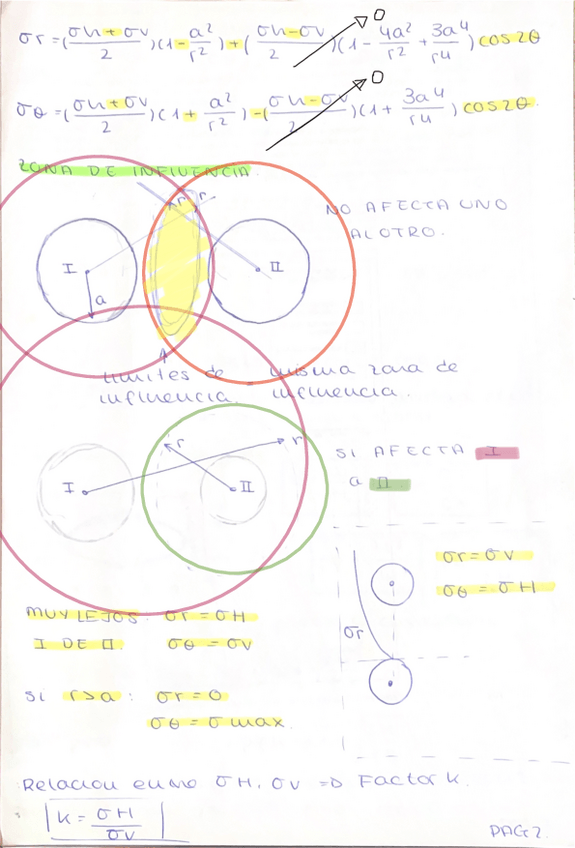 σr = (σh + σv / 2)(1 - a²/r²) + (σh - σv / 2)(1 - 4a²/r² + 3a⁴/r⁴) cos2θ
0
σθ = (σh + σv / 2)(1 + a²/r²) - (σh - σv / 2)(1 + 3a⁴/r⁴) cos2θ.
0
ZONA DE INFLUENCIA.
r r
NO AFECTA UNO
AL OTRO.
I a II
límites de influencia. = misma zona de influencia.
r r
I II
SI AFECTA I
a II
σr = σv
σθ = σH
σr
MUY LEJOS: σr = σH
I DE II. σθ = σv
SI r>a: σr = 0
σθ = σmax.
Relacion entre σH, σv => Factor k.
k = σH / σv
PAG 2.